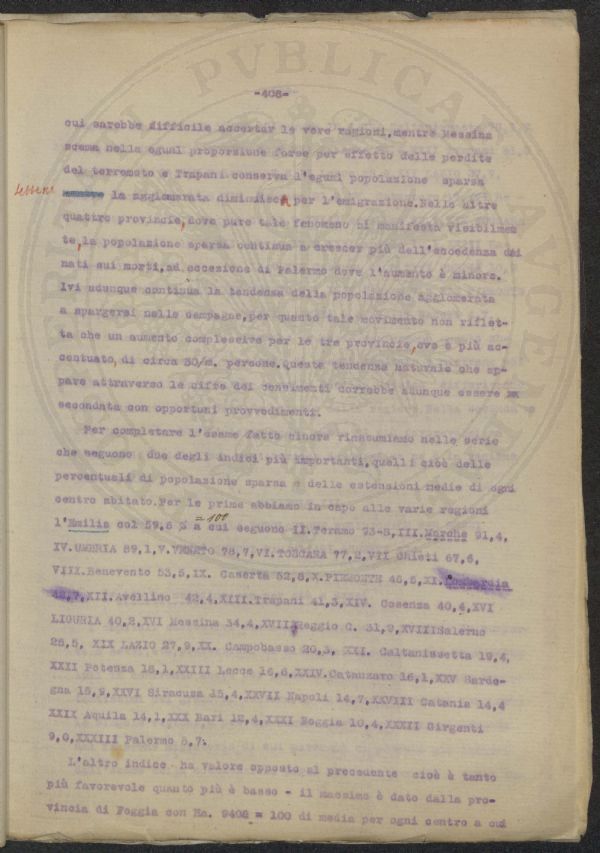 -408-
cui sarebbe difficile accertar le vere ragioni, mentre Messina
scema nella egual proporzione forse per effetto delle perdite
del terremoto e Trapani conserva l'egual popolazione sparsa
la agglomerata diminuisce per l'emigrazione. Nelle altre
quattro provincie, dove pure tale fenomeno si manifesta visibilmen
te, la popolazione sparsa continua a crescer più dell'eccedenza dei
nati sui morti, ad eccezione di Palermo dove l'aumento è minore.
Ivi adunque continua la tendenza della popolazione agglomerata
a spargersi nelle campagne, per quanto tale movimento non riflet-
ta che un aumento complessivo per le tre provincie, ove è più ac-
centuato, di circa 30/m. persone. Questa tendenza naturale che ap-
pare attraverso le cifre dei censimenti dovrebbe adunque essere
secondata con opportuni provvedimenti.
Per completare l'esame fatto sinora riassumiamo nelle serie
che seguono due degli indici più importanti, quelli cioè delle
percentuali di popolazione sparsa e delle estensioni medie di ogni
centro abitato. Per le prime abbiamo in capo alle varie regioni
l'Emilia col 59,6 % = 100 a cui seguono II. Teramo 93-8, III. Marche 91,4,
IV. UMBRIA 89,1, V. VENETO 78,7, VI. TOSCANA 77,2, VII Chieti 67,6,
VIII. Benevento 53,5, IX. Caserta 52,8, X. PIEMONTE 46,5, XI. Lombardia
42,7, XII. Avellino 42,4, XIII. Trapani 41,3, XIV. Cosenza 40,4, XVI
LIGURIA 40,2, XVI Messina 34,4, XVII Reggio C. 31,2, XVIII Salerno
28,5, XIX LAZIO 27,9, XX. Campobasso 20,3, XXI. Caltanissetta 19,4,
XXII Potenza 18,1, XXIII Lecce 16,6, XXIV. Catanzaro 16,1, XXV Sarde-
gna 15,9, XXVI Siracusa 15,4, XXVII Napoli 14,7, XXVIII Catania 14,4
XXIX Aquila 14,1, XXX Bari 12,4, XXXI Foggia 10,4, XXXII Girgenti
9,0, XXXIII Palermo 8,7.
L'altro indice - ha valore opposto al precedente cioè è tanto
più favorevole quanto più è basso - il massimo è dato dalla pro-
vincia di Foggia con Ha. 9402 = 100 di media per ogni centro a cui